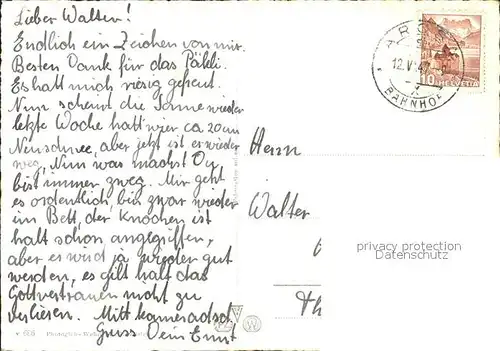 Lieber Walter!
Endlich ein Zeichen von mir.
Besten Dank für das Päkli.
Es hatt mich riesig gefreut.
Nun scheint die Sonne wieder
letzte Woche hatt wier ca 20cm
Neuschnee, aber jetzt ist er wieder
weg, Nun was machst Du
bist immer zweg. Mir geht
es ordentlich, bin zwar wieder
im Bett, der Knochen ist
halt schon angegriffen,
aber es wird ja wieder gut
werden, es gilt halt das
Gottvertrauen nicht zu
verlieren. Mitt kameradsch.
Gruss Dein Ernst
Herrn
Walter
Th
12.V
BAHNHOF
10 HELVETIA
privacy protection
Datenschutz
W